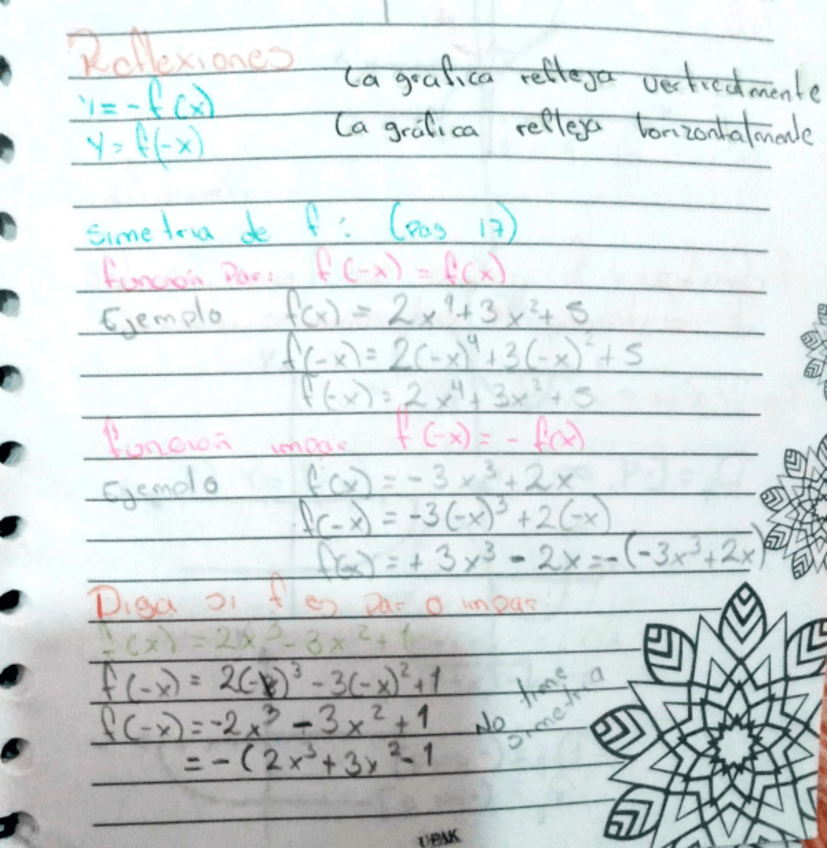 Reflexiones
y = -f(x) La grafica refleja verticalmente
y = f(-x) La gráfica refleja horizontalmente
Simetria de f: (pag 17)
función Par: f(-x) = f(x)
Ejemplo f(x) = 2x⁴ + 3x² + 5
f(-x) = 2(-x)⁴ + 3(-x)² + 5
f(-x) = 2x⁴ + 3x² + 5
función impar f(-x) = - f(x)
Ejemplo f(x) = -3x³ + 2x
f(-x) = -3(-x)³ + 2(-x)
f(-x) = + 3x³ - 2x = -(-3x³ + 2x)
Diga si f es par o impar
f(x) = 2x³ - 3x² + 1
f(-x) = 2(-x)³ - 3(-x)² + 1
f(-x) = -2x³ - 3x² + 1 No tiene simetria
= -(2x³ + 3x² - 1